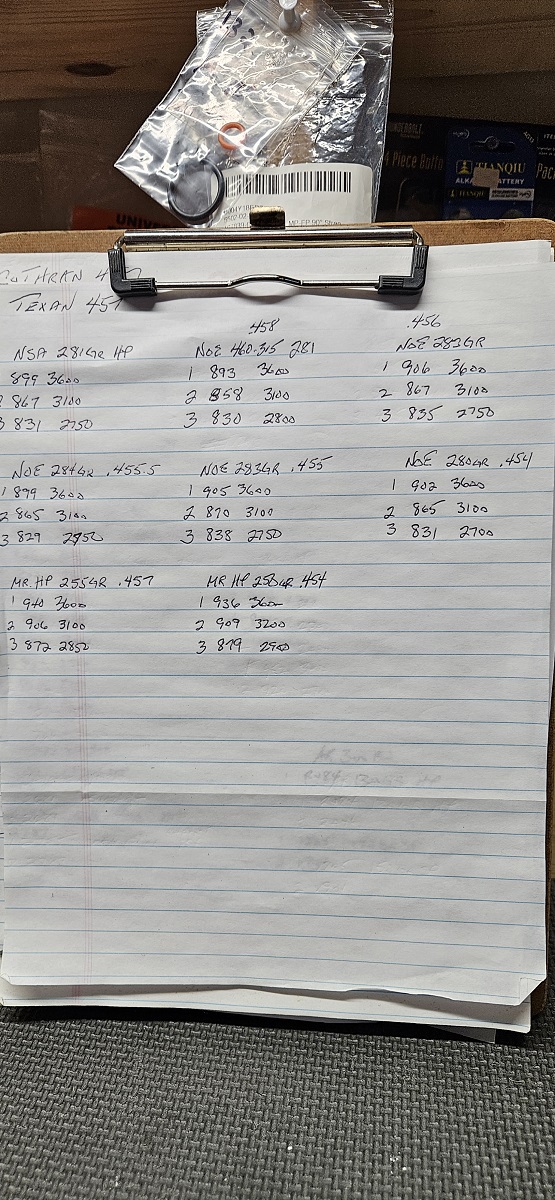 TEXAN 457
NSA 281GR HP
899 3600
2 867 3100
3 831 2750
.458
NOE 460-315 281
1 893 3600
2 858 3100
3 830 2800
.456
NOE 283GR
1 906 3600
2 867 3100
3 835 2750
NOE 284GR .455.5
1 899 3600
2 865 3100
3 829 2750
NOE 283GR .455
1 905 3600
2 870 3100
3 838 2750
NOE 280GR .454
1 902 3600
2 865 3100
3 831 2700
MR. HP 255GR .457
1 940 3600
2 906 3100
3 872 2850
MR HP 250GR .454
1 936 3600
2 909 3200
3 879 2900
4 Piece Butto
TIANQIU
TIANQIU